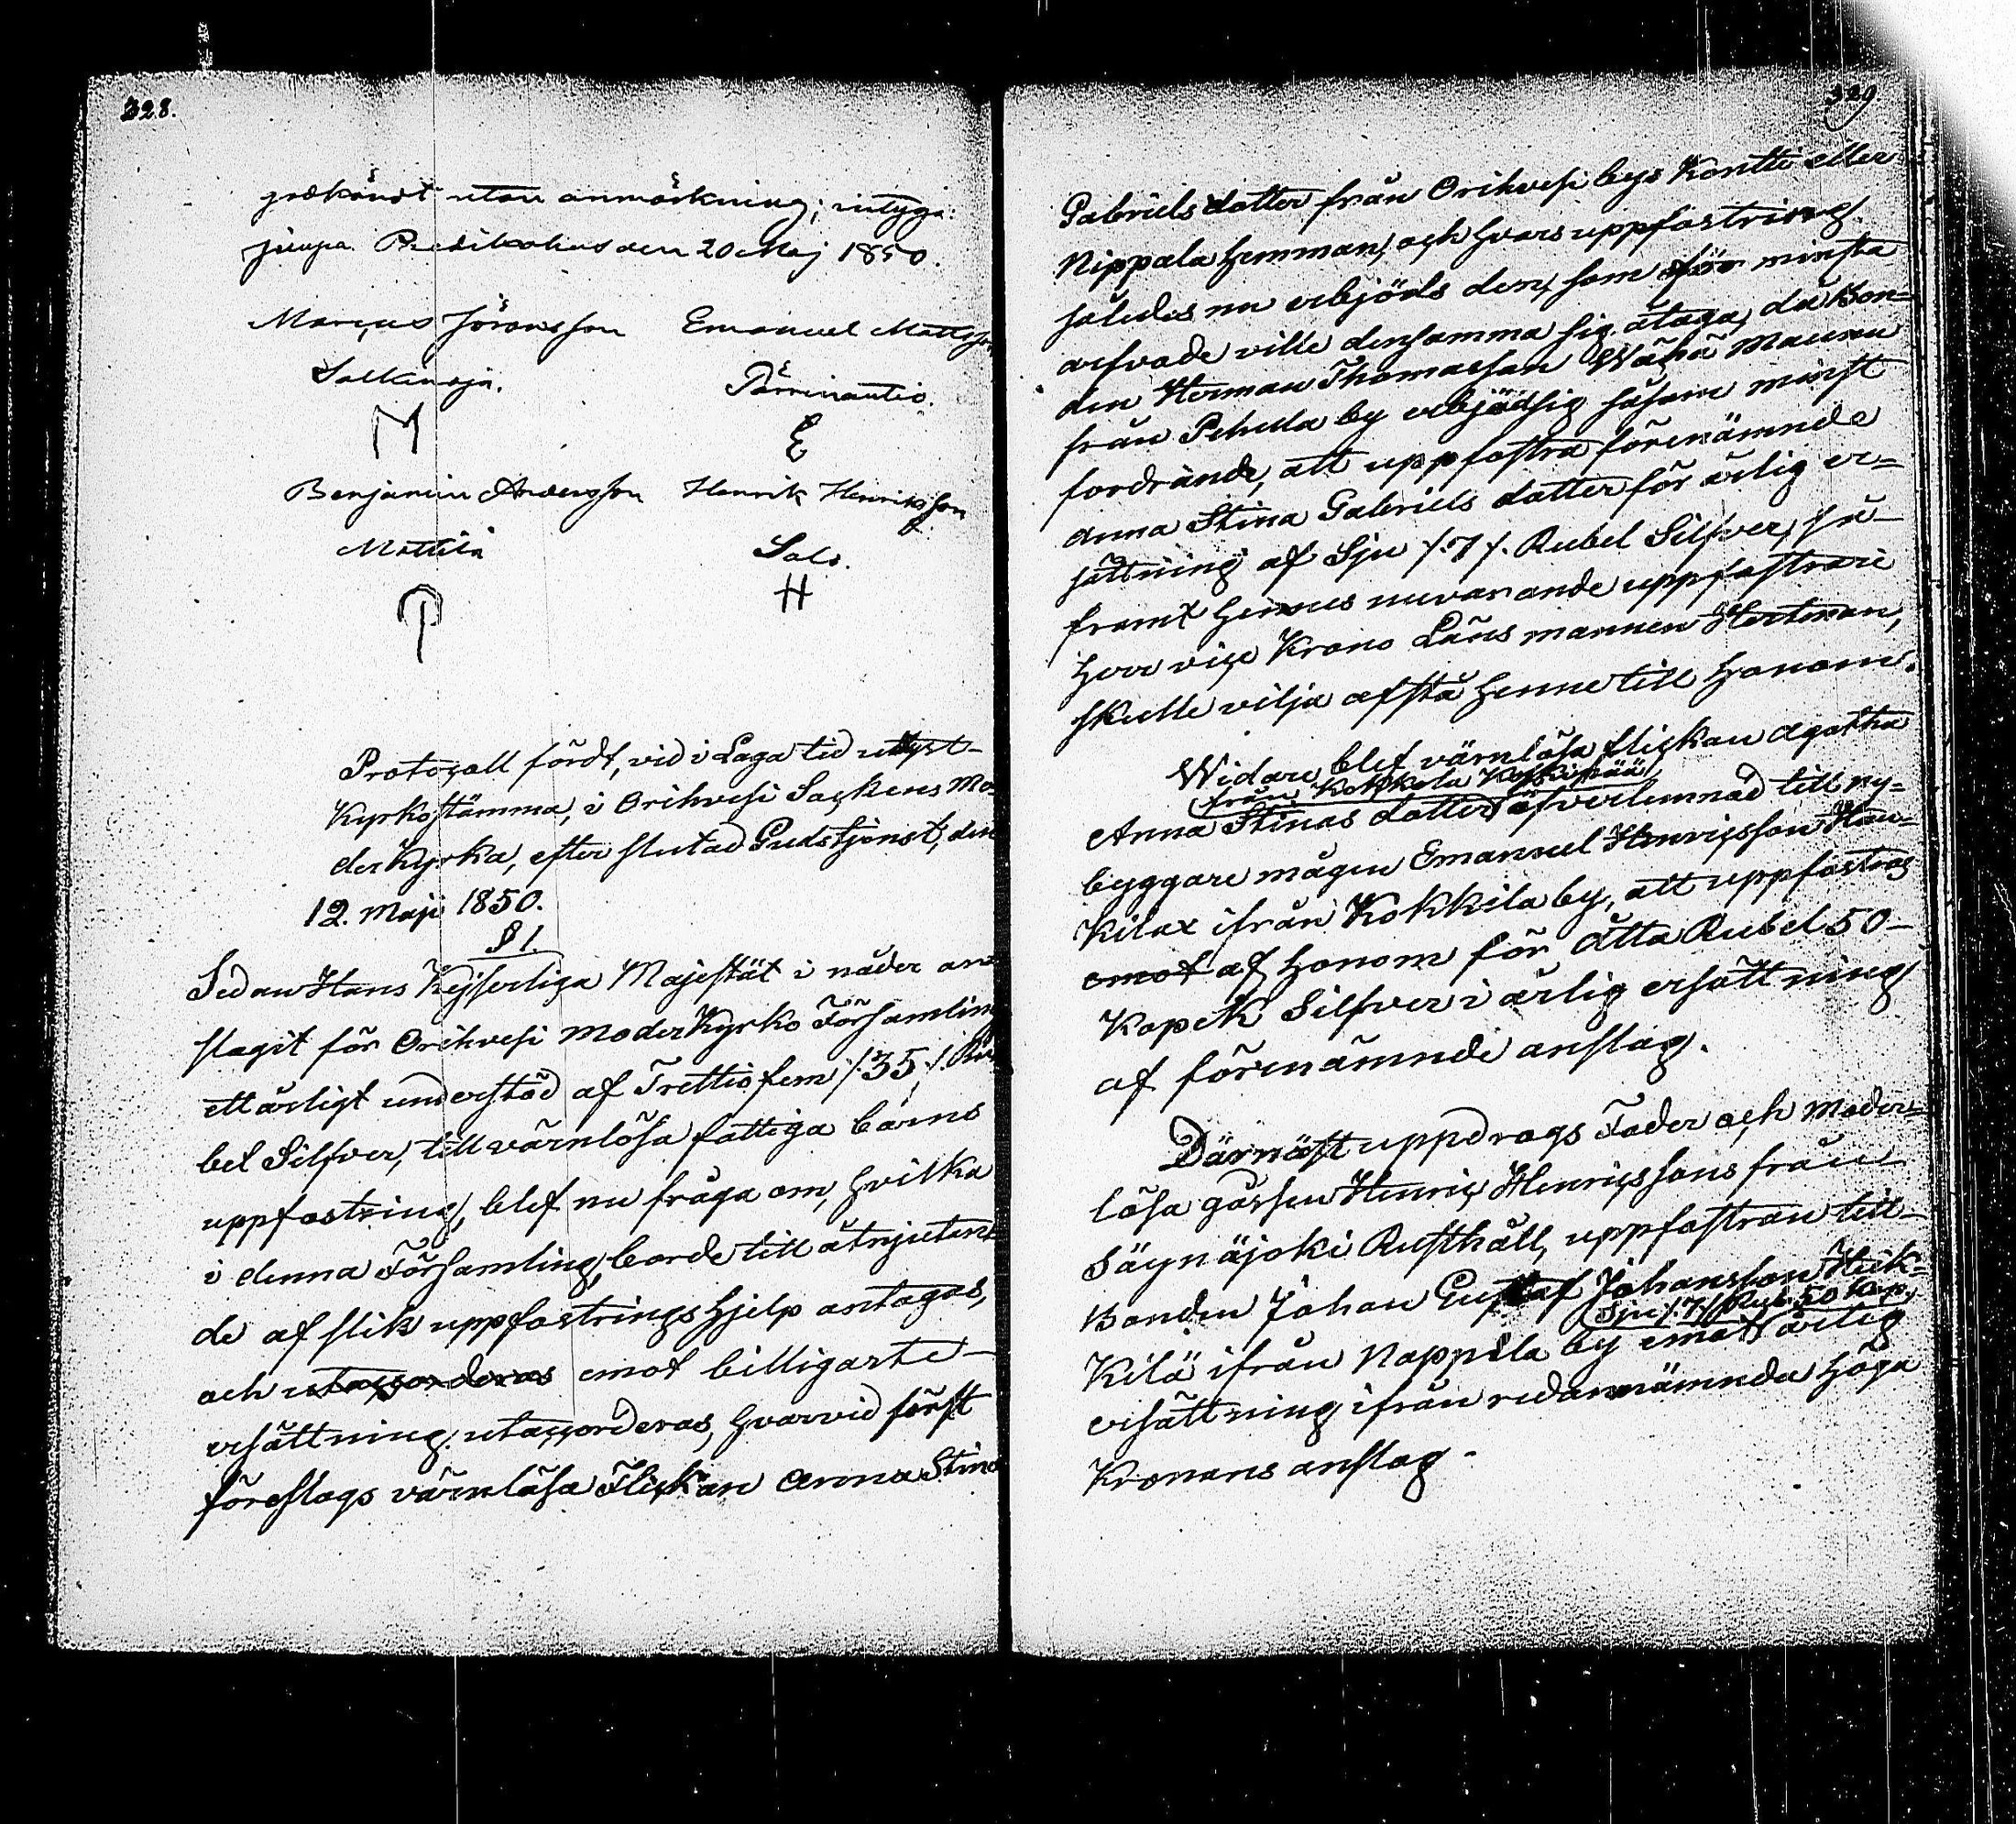 328.
godkändt utan anmärkning; intyga:
Predikohus den 20 Maj 1850.
Marcus Jöransson Emanuel Mattsson
Salkinoja. Pärrinautio.
M E
Benjamin Andersson Henrik Henriksson
Mattila Salo.
H
Protocoll fördt, vid i Laga tid utlyst
Kyrkostämma, i Orihvesi Sockens Mo-
derkyrka, efter slutad Gudstjenst, den
12. Maji 1850.
§ 1.
Sedan Hans Kejserliga Majestät i nåder an-
slagit för Orihvesi Moderkyrko Församling
ett årligt understöd af Trettiofem /:35:/ Ru-
bel Silfver, till värnlösa fattiga barns
uppfostring, blef nu fråga om, hvilka
i denna Församling, borde till åtnjutan-
de af slik uppfostringshjelp antagas,
och utackorderas emot billigaste
ersättning utackorderas, hvarvid först
föreslogs värnlösa Flickan Anna Stina
329
Gabriels dotter från Orihvesi bys Kontti eller
Nippala hemman, och hvars uppfostring
således nu erbjöds den, som för minsta
arfvode ville densamma sig åtaga, då Bon-
den Herman Thomasson Wähä Maunu
från Pehula by erbjöd sig såsom minst
fordrande, att uppfostra förenämnde
Anna Stina Gabriels dotter för årlig er-
sättning af Sju /:7:/ Rubel Silfver, så-
framt hennes nuvarande uppfostrare
Herr vice Krono Länsmannen Hertman,
skulle vilja afstå henne till honom.
Widare blef värnlösa flickan Agatha
från Kokkola Koskipää
Anna Stinas dotter öfverlemnad till ny-
byggare mågen Emanuel Henricsson Hau-
kilax ifrån Kokkila by, att uppfostras
emot af honom för Åtta Rubel 50
Kopek Silfver i årlig ersättning
af förenämnde anslag.
Därnäst uppdrogs Fader och Moder-
lösa gossen Henric Henricssons från
Säynäjoki Rusthåll, uppfostran till
Bonden Johan Gustaf Johansson Heik-
Sju /:7:/ Rub. 50 Kop.
Kilä ifrån Nappila by emot årlig
ersättning ifrån redannämnda höga
Kronans anslag.